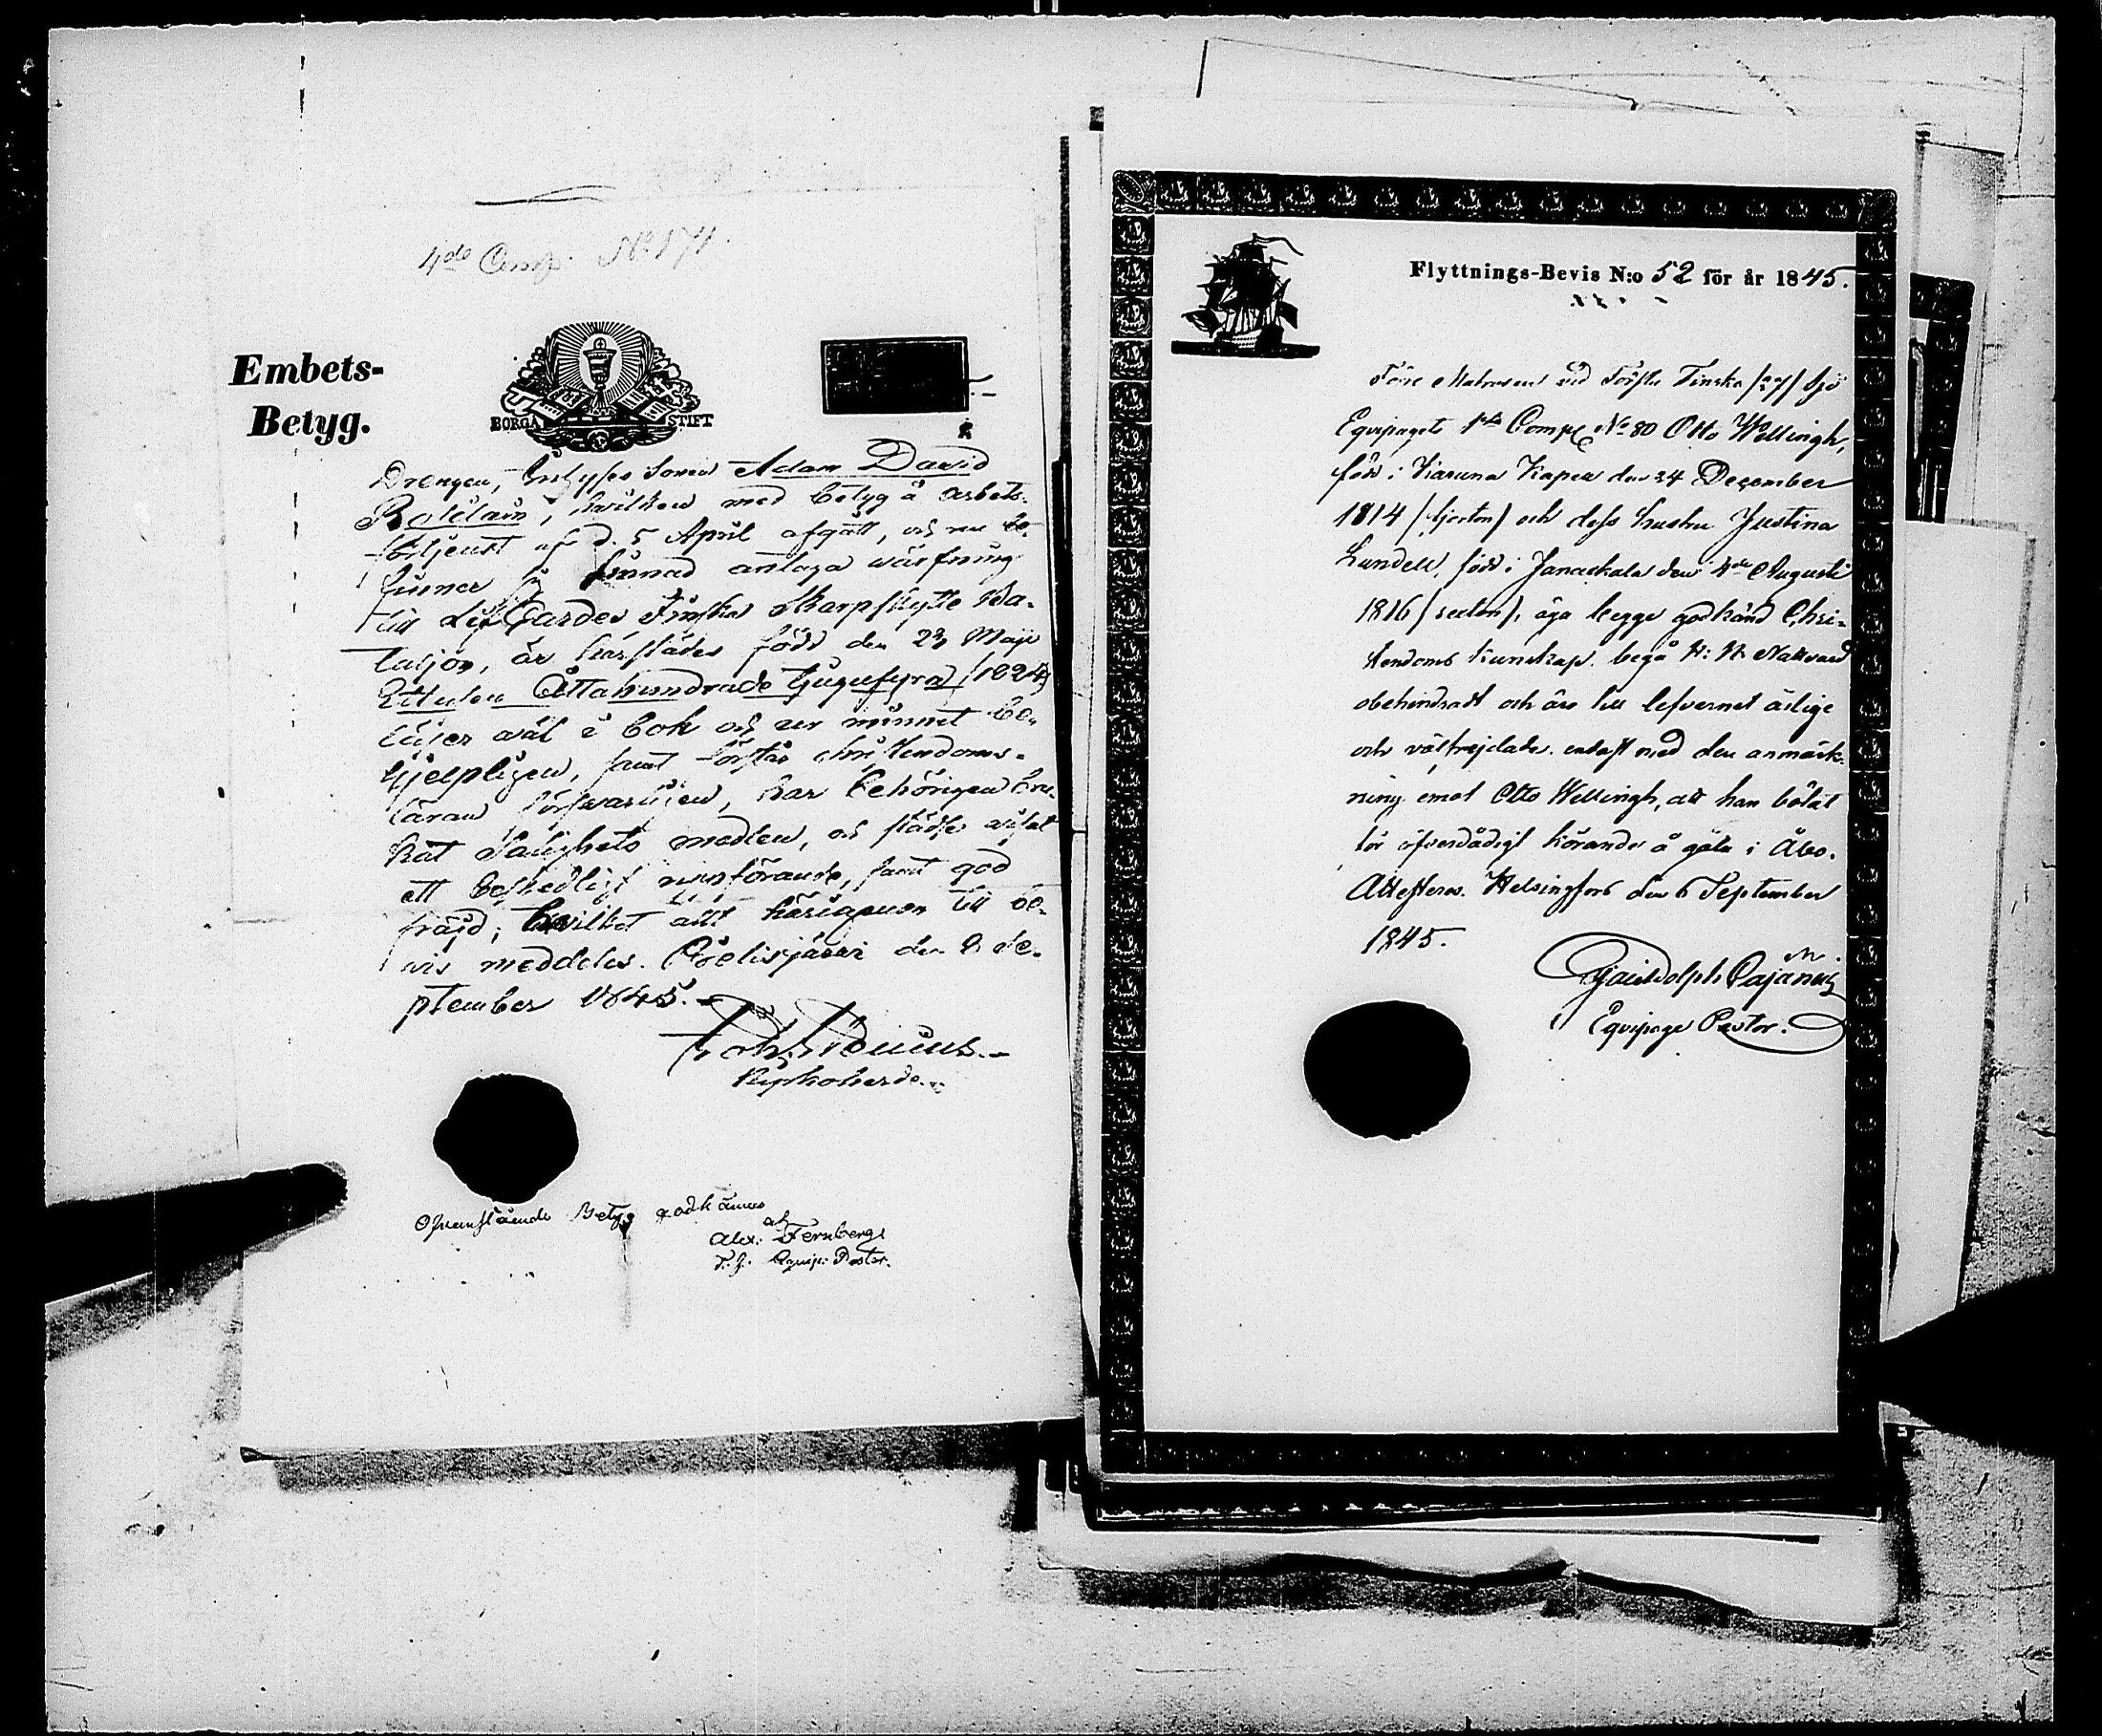 4de Comp. No 171.
Embets-
Betyg.
BORGÅ STIFT
Drengen, Sonen Adam David
hvilken med betyg å arbets-
förtjenst af d. 5 April afgått, och nu be-
finner sig sinnad antaga värfning
till Lif Gardes Finska Skarpskytte Ba-
taljon, är härstädes född den 23 Maji
Ettusen Åttahundrade tjugufyra (1824)
läser väl i bok och ur minnet be-
hjelpligen, samt förstår christendoms-
läran försvarligen, har behörigen bru-
kat Salighets medlen, och städse visat
ett beskedligt uppförande, samt god
fräjd; hvilket allt härigenom till be-
vis meddelas. den 8 Se-
ptember 1845.
Kyrkoherde.
Ofvanstående Betyg godkännes
af
Alex: Fernberg
T. f. Equip: Pastor.
Flyttnings-Bevis N:o 52 för år 1845.
Före Matrosen vid Första Finska /27/ Sjö
Equipagets 1sta Comp. No 80 Otto Wellingh,
född i Karuna Kapell den 24 December
1814 (fjorton) och dess hustru Justina
Lundell, född i Janackala den 4de Augusti
1816 (sexton), äga begge godkänd Chri-
stendoms kunskap, begå H: H: Nattvard
obehindradt och äro till lefvernet ärlige
och välfrejdade, endast med den anmärk-
ning emot Otto Wellingh, att han bötat
för öfverdådigt körande å gata i Åbo.
Attesteras. Helsingfors den 6 September
1845.
Cajanus
Equipage Pastor.